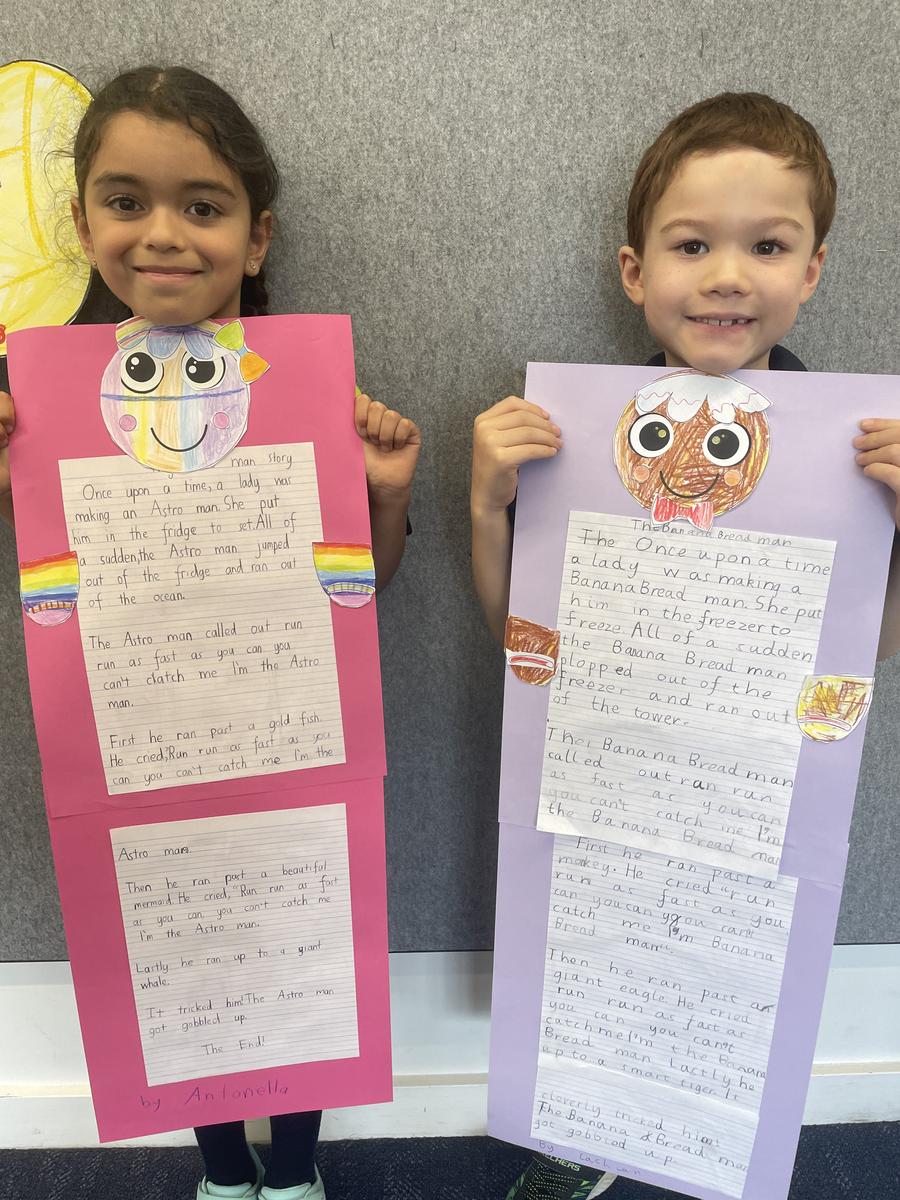 man story
Once upon a time, a lady was
making an Astro man. She put
him in the fridge to set. All of
a sudden, the Astro man jumped
out of the fridge and ran out
of the ocean.
The Astro man called out run
run as fast as you can you
can't clatch me I'm the Astro
man.
First he ran past a gold fish.
He cried, "Run run as fast as you
can you can't catch me I'm the
Astro man.
Then he ran past a beautiful
mermaid. He cried, "Run run as fast
as you can, you can't catch me
I'm the Astro man.
Lastly he ran up to a giant
whale.
It tricked him! The Astro man
got gobbled up.
The End!
by Antonella
The Banana Bread man
The Once upon a time
a lady was making a
Banana Bread man. She put
him in the freezer to
freeze. All of a sudden
the Banana Bread man
plopped out of the
freezer and ran out
of the tower.
The Banana Bread man
called out ran run
as fast as you can
you can't catch me I'm
the Banana Bread man
First he ran past a
mokey. He cried "run
run as fast as you
can you can you can't
catch me I'm Banana
Bread man".
Then he ran past an
giant eagle. He cried
run run as fast as
you can you can't
catch me I'm the Banana
Bread man Lastly he
up to a smart tiger. It
cleverly tricked him!
The Banana Bread man
got gobbled up
By Lachlan
SKECHERS